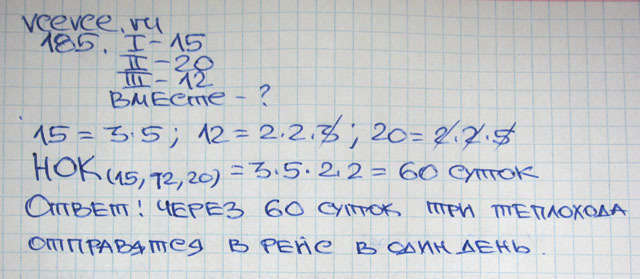 vcevce.ru
185. I - 15
II - 20
III - 12
ВМЕСТЕ - ?
15 = 3·5; 12 = 2·2·3; 20 = 2·2·5
НОК(15,12,20) = 3·5·2·2 = 60 СУТОК
ОТВЕТ! ЧЕРЕЗ 60 СУТОК ТРИ ТЕПЛОХОДА
ОТПРАВЯТСЯ В РЕЙС В ОДИН ДЕНЬ.